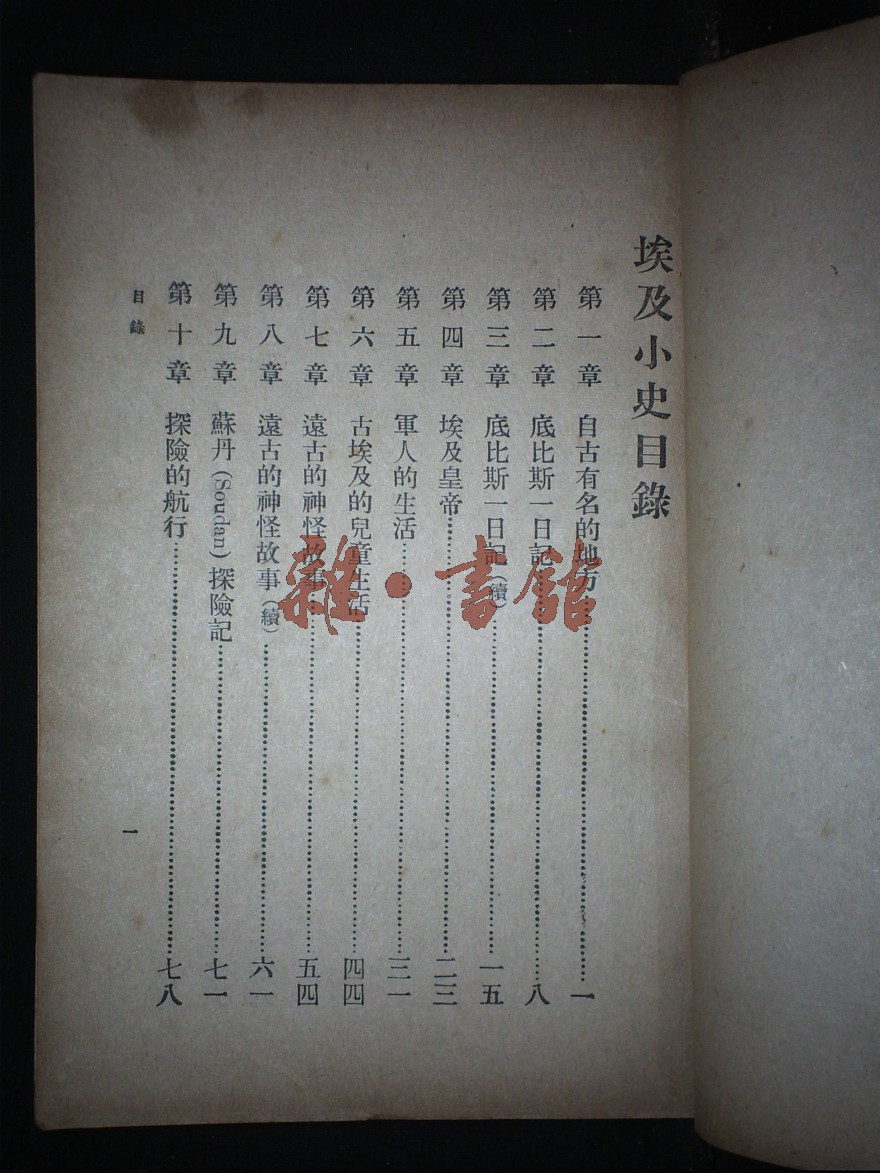 埃及小史目錄
第一章 自古有名的地方………一
第二章 底比斯一日記………八
第三章 底比斯一日記(續)………一五
第四章 埃及皇帝………二三
第五章 軍人的生活………三一
第六章 古埃及的兒童生活………四四
第七章 遠古的神怪故事………五四
第八章 遠古的神怪故事(續)………六一
第九章 蘇丹(Soudan)探險記………七一
第十章 探險的航行………七八
目錄
一
雜·書館